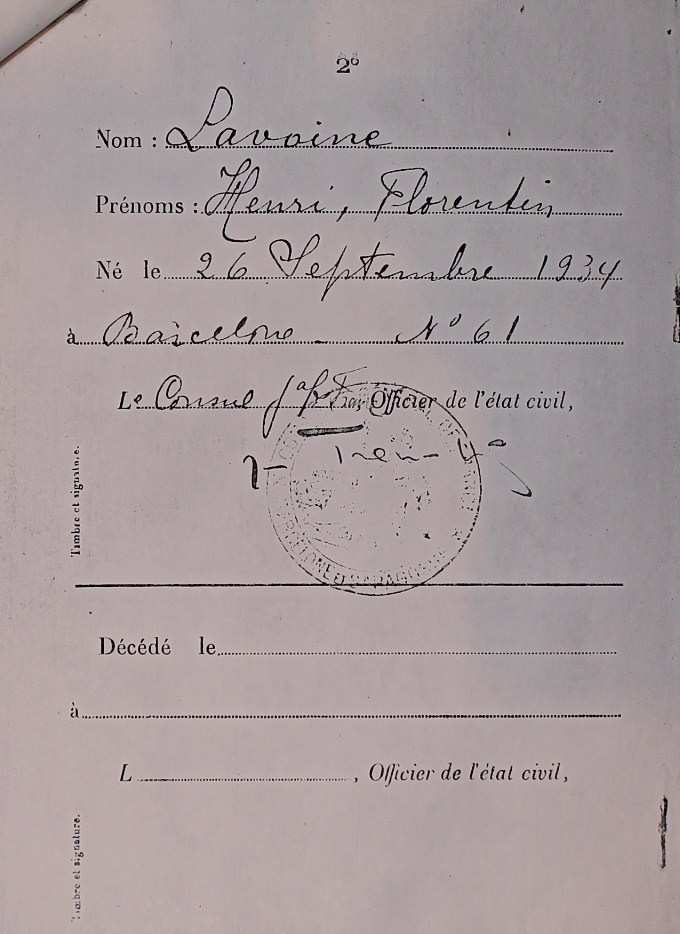 2º
Nom : Lavoine
Prénoms : Henri, Florentin
Né le 26 Septembre 1934
à Barcelone - Nº 61
Le Consul Officier de l'état civil,
Timbre et signature.
Décédé le
à
L , Officier de l'état civil,
Timbre et signature.